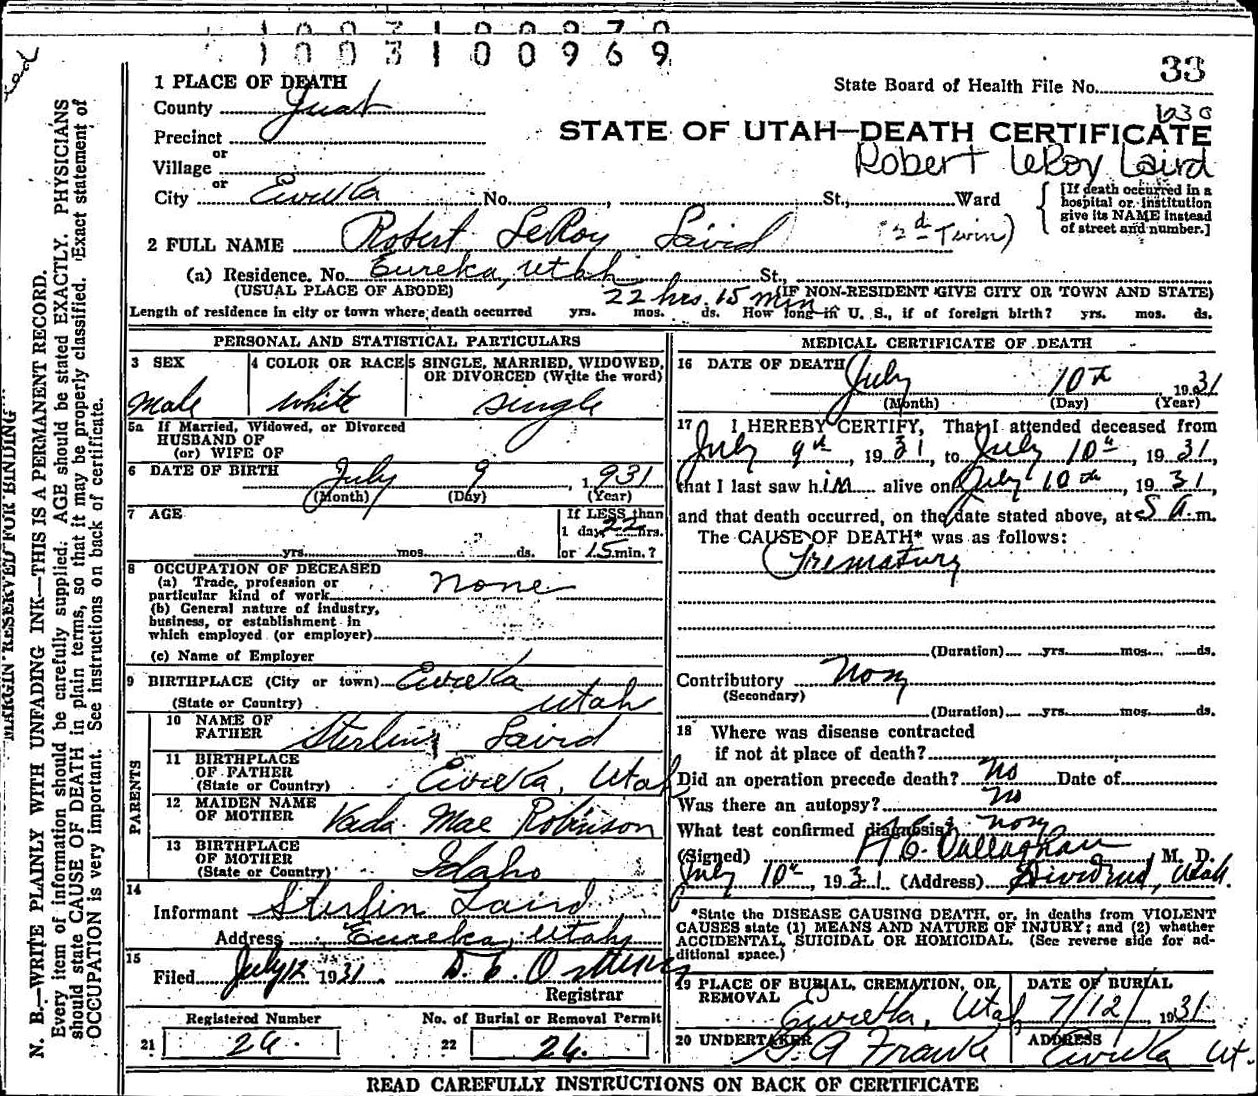 1 0 0 3 1 0 0 9 7 0
1 0 0 3 1 0 0 9 6 9
33
State Board of Health File No.
1 PLACE OF DEATH
County Juab
Precinct
or
Village
or
City Eureka No. , St., Ward
STATE OF UTAH—DEATH CERTIFICATE
Robert LeRoy Laird
[If death occurred in a
hospital or institution
give its NAME instead
of street and number.]
2 FULL NAME Robert LeRoy Laird (2d Twin)
(a) Residence, No. Eureka, Utah St.,
(USUAL PLACE OF ABODE) (IF NON-RESIDENT GIVE CITY OR TOWN AND STATE)
22 hrs. 15 min
Length of residence in city or town where death occurred yrs. mos. ds. How long in U. S., if of foreign birth? yrs. mos. ds.
PERSONAL AND STATISTICAL PARTICULARS
3 SEX
Male
4 COLOR OR RACE
White
5 SINGLE, MARRIED, WIDOWED,
OR DIVORCED (Write the word)
Single
5a If Married, Widowed, or Divorced
HUSBAND OF
(or) WIFE OF
6 DATE OF BIRTH July 9, 1931
(Month) (Day) (Year)
7 AGE
yrs. mos. ds.
If LESS than
1 day 22 hrs.
or 15 min.?
8 OCCUPATION OF DECEASED
(a) Trade, profession or
particular kind of work none
(b) General nature of industry,
business, or establishment in
which employed (or employer)
(c) Name of Employer
9 BIRTHPLACE (City or town) Eureka
(State or Country) Utah
PARENTS
10 NAME OF
FATHER Sterling Laird
11 BIRTHPLACE
OF FATHER
(State or Country) Eureka, Utah
12 MAIDEN NAME
OF MOTHER Vada Mae Robinson
13 BIRTHPLACE
OF MOTHER
(State or Country) Idaho
14
Informant Sterlin Laird
Address Eureka, Utah
15
Filed July 12 1931
Registrar
Registered Number
21 26.
No. of Burial or Removal Permit
22 26.
MEDICAL CERTIFICATE OF DEATH
16 DATE OF DEATH July 10th 1931
(Month) (Day) (Year)
17 I HEREBY CERTIFY, That I attended deceased from
July 9th, 1931, to July 10th, 1931,
that I last saw him alive on July 10th, 1931,
and that death occurred, on the date stated above, at 5 a.m.
The CAUSE OF DEATH* was as follows:
Prematury
(Duration) yrs. mos. ds.
Contributory None
(Secondary)
(Duration) yrs. mos. ds.
18 Where was disease contracted
if not at place of death?
Did an operation precede death? No Date of
Was there an autopsy? No
What test confirmed diagnosis? None
(Signed) Callaghan M. D.
July 10th, 1931 (Address) Dividend, Utah.
*State the DISEASE CAUSING DEATH, or, in deaths from VIOLENT
CAUSES state (1) MEANS AND NATURE OF INJURY; and (2) whether
ACCIDENTAL, SUICIDAL OR HOMICIDAL. (See reverse side for ad-
ditional space.)
19 PLACE OF BURIAL, CREMATION, OR
REMOVAL
Eureka, Utah
DATE OF BURIAL
7/12/1931
20 UNDERTAKER
G. A Franke
ADDRESS
Eureka Ut.
READ CAREFULLY INSTRUCTIONS ON BACK OF CERTIFICATE
MARGIN RESERVED FOR BINDING
N. B.—WRITE PLAINLY WITH UNFADING INK—THIS IS A PERMANENT RECORD.
Every item of information should be carefully supplied. AGE should be stated EXACTLY. PHYSICIANS
should state CAUSE OF DEATH in plain terms, so that it may be properly classified. Exact statement of
OCCUPATION is very important. See instructions on back of certificate.